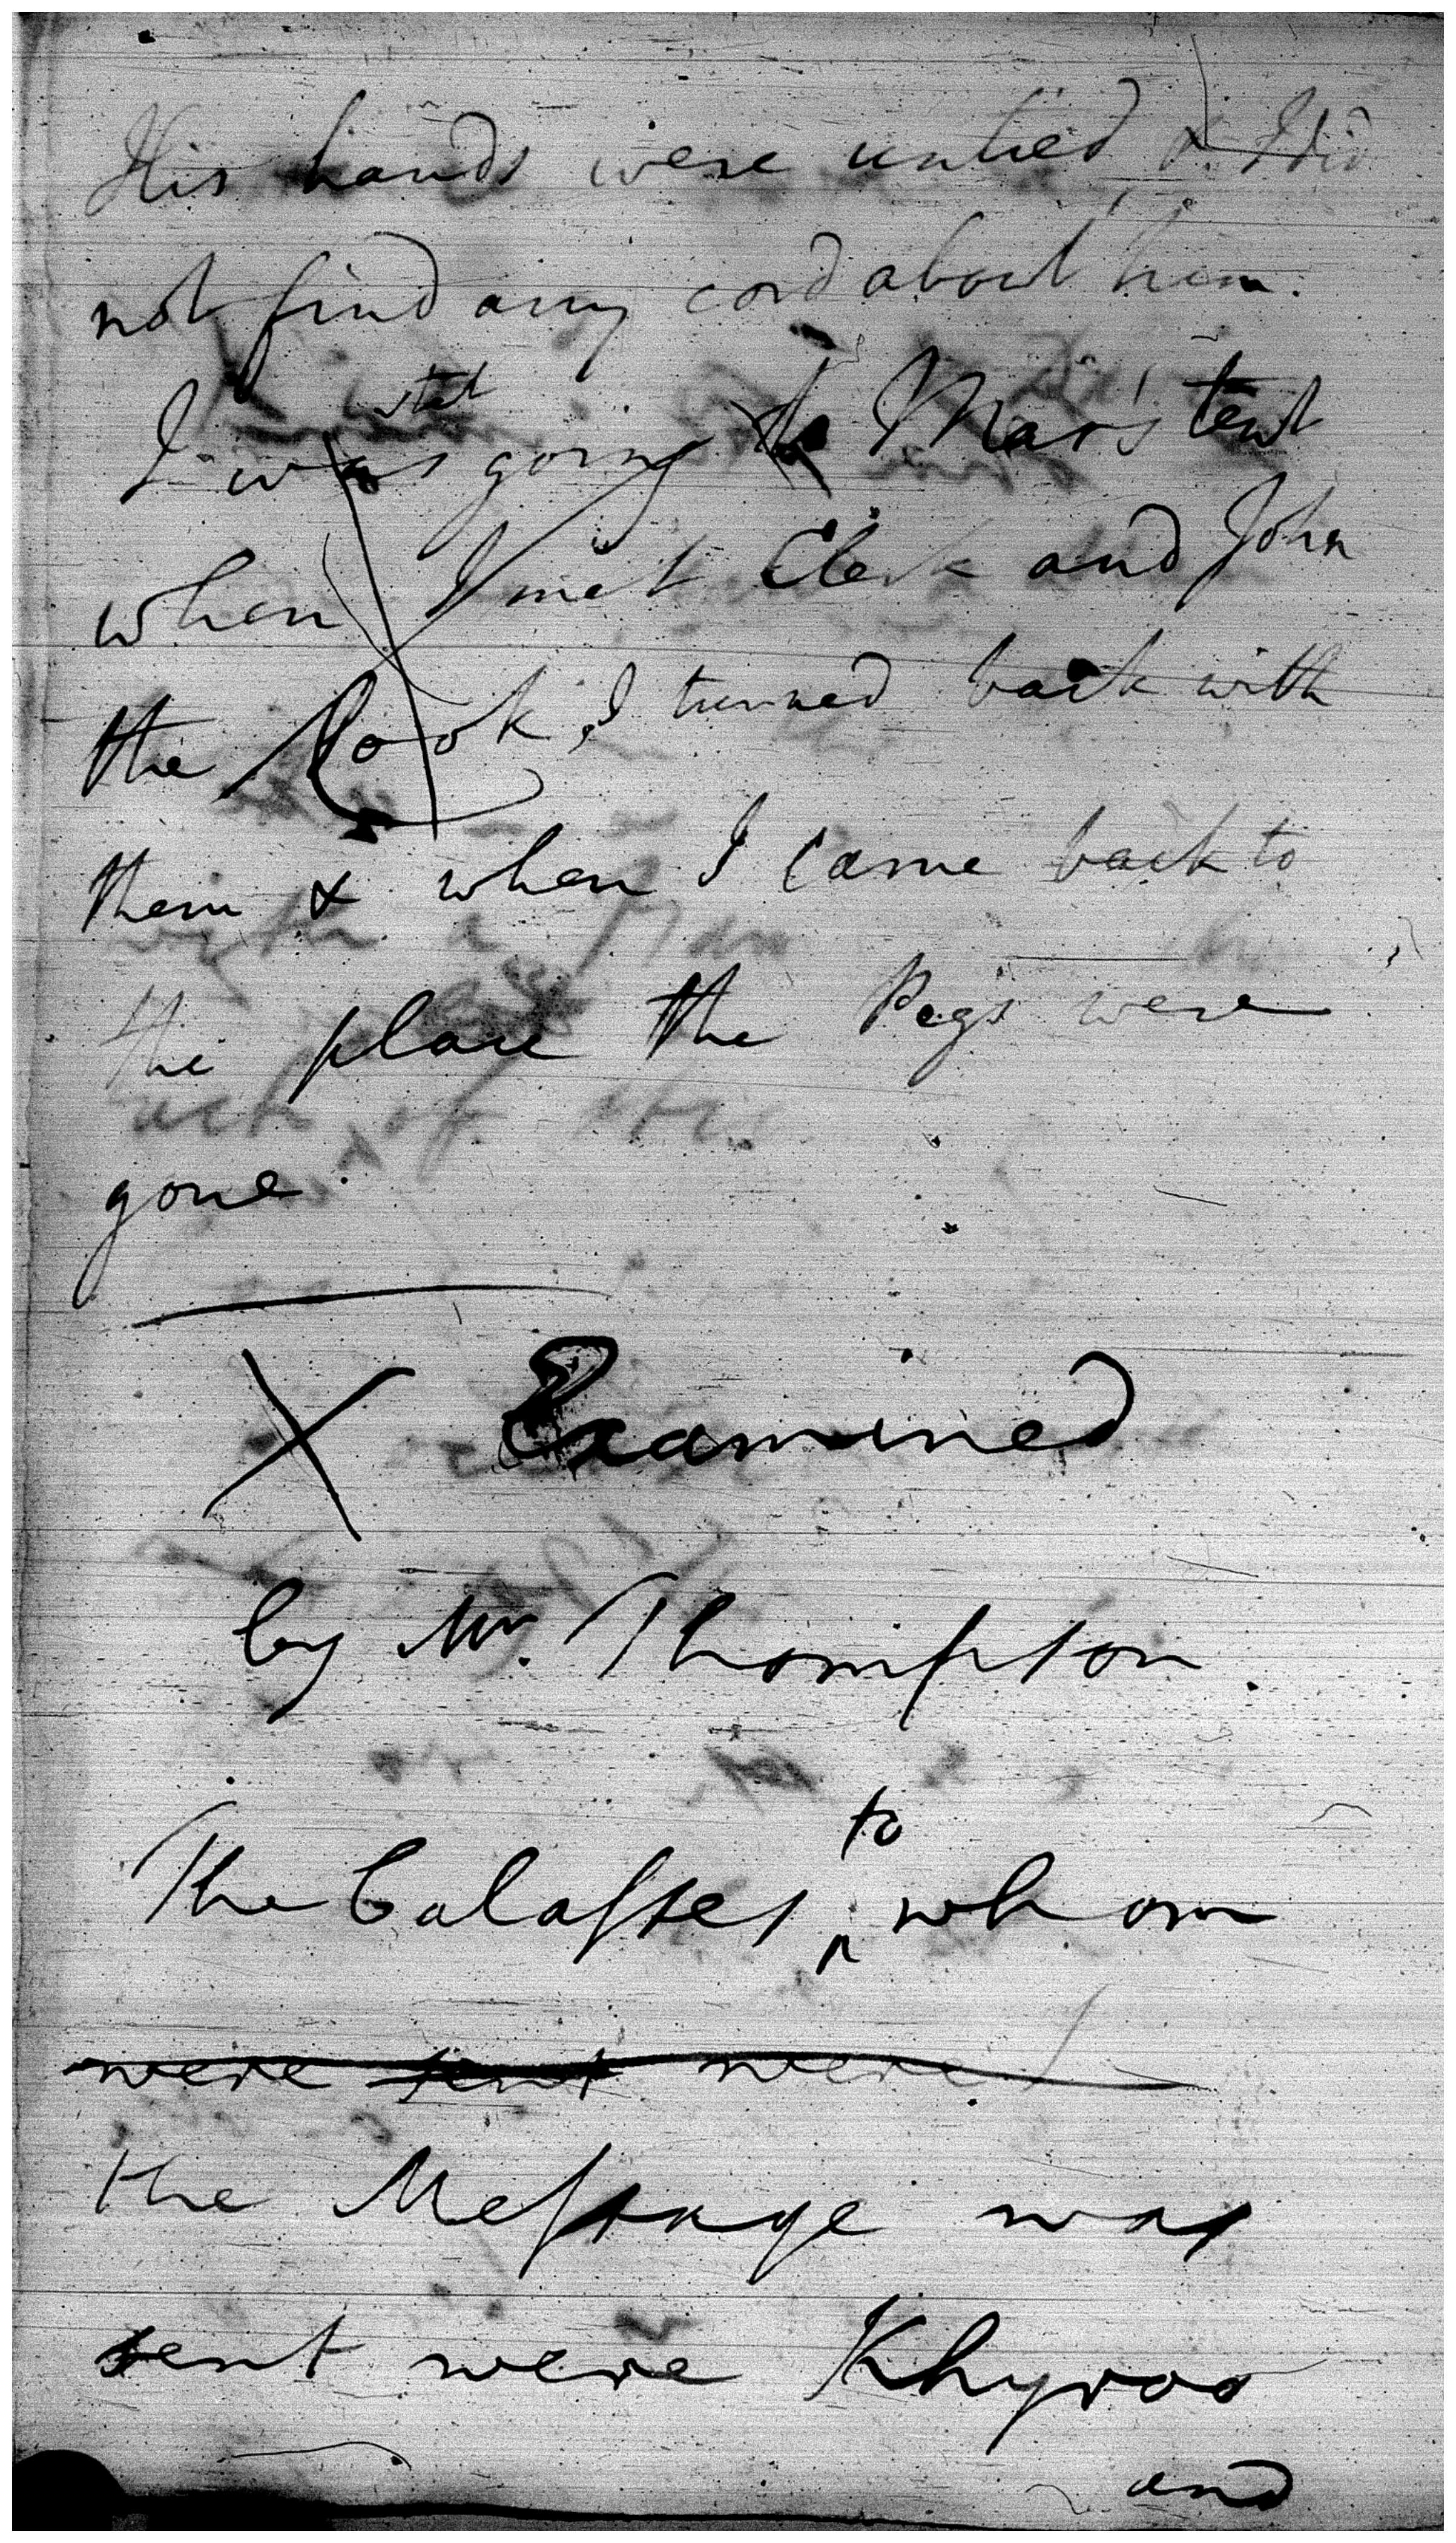 His hands were untied & I did
not find any cord about him.
I was going to Mar's tent
when I met Clerk and John
the Cook, I turned back with
them & when I came back to
the place the Pegs were
gone.
X Examined
by Mr. Thompson.
to
The Calasses ^ whom
were sent were
the Message was
sent were Khyroo
and